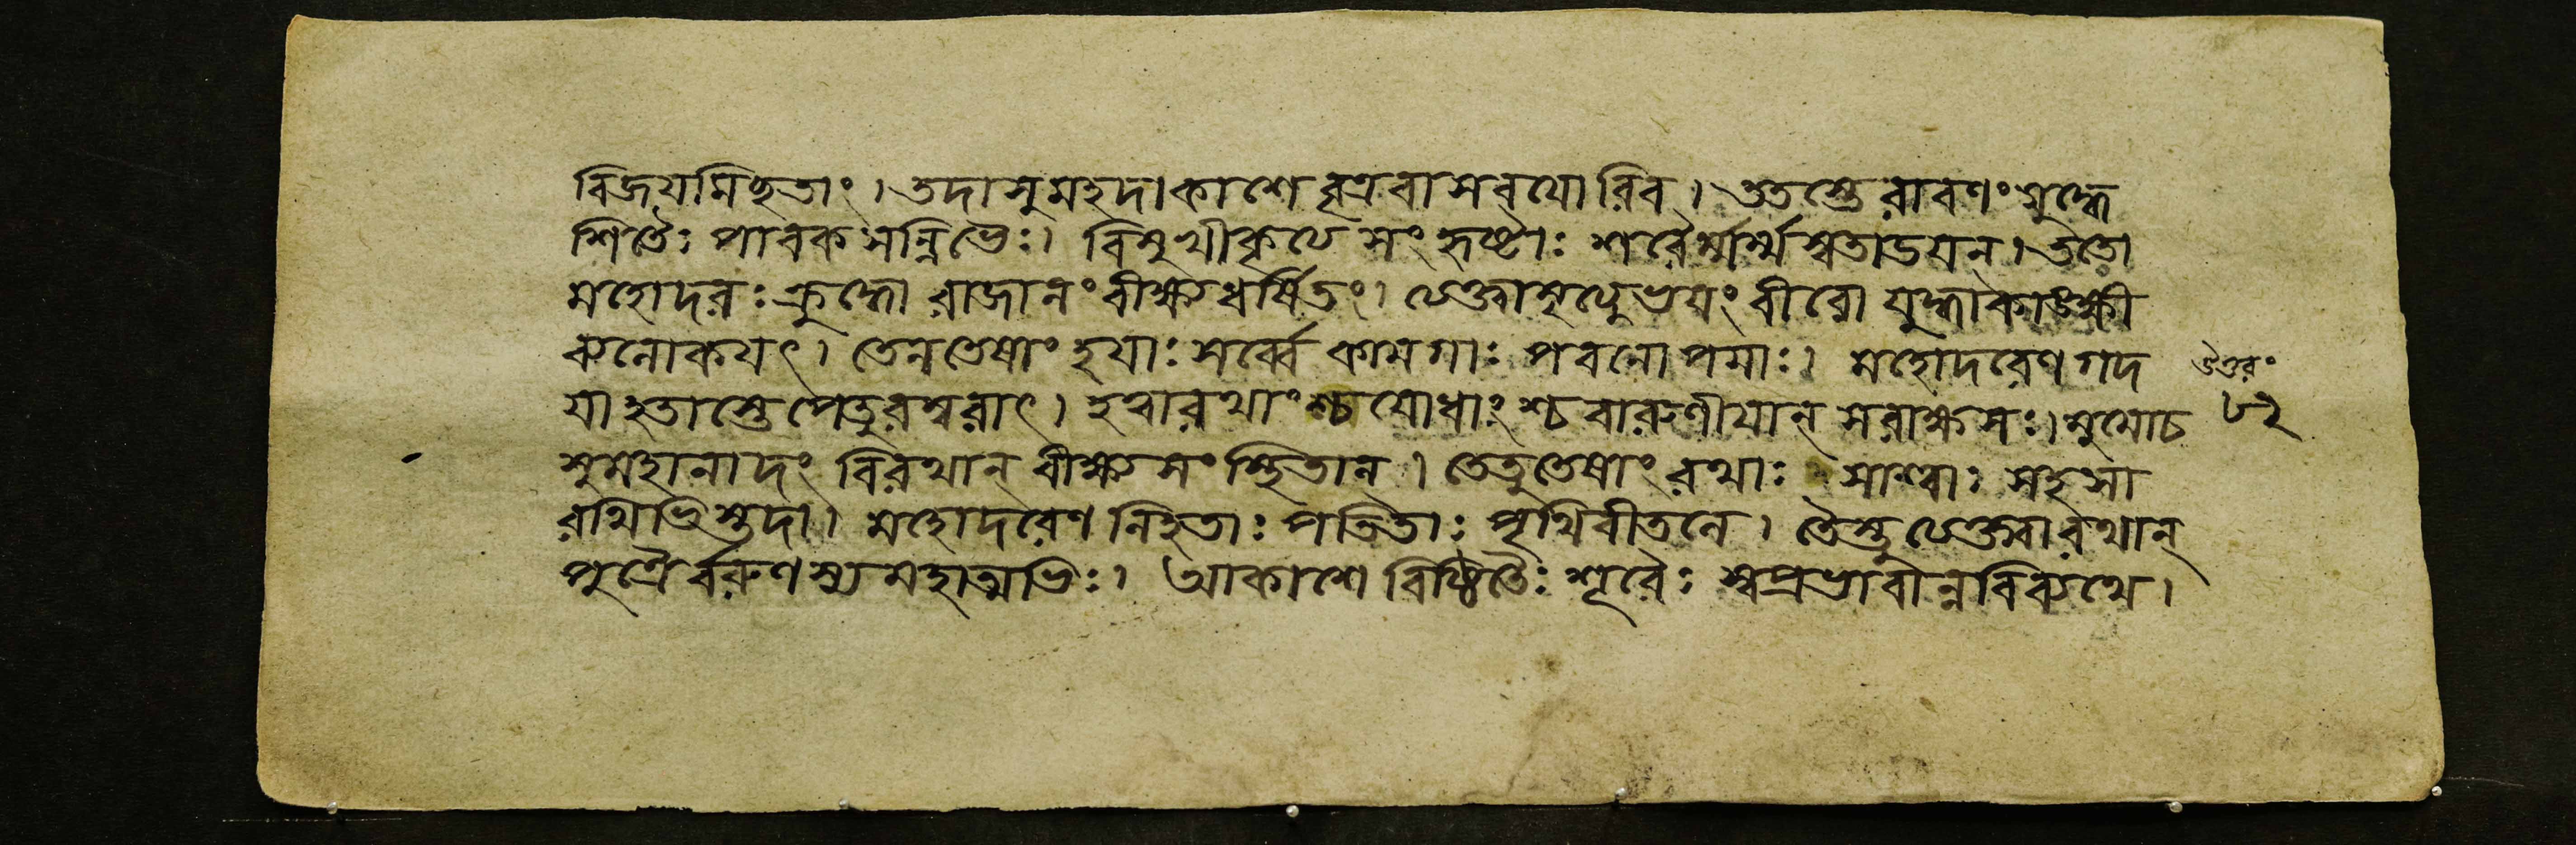 বিজয়মিচ্ছতাং । তদা সুমহদাকাশে বৃত্রবাসবয়োরিব । ততস্তে রাবণং যুদ্ধে
শিতৈঃ পাবকসন্নিভৈঃ । বিমুখীকৃত্য সংহৃষ্টাঃ শরৈর্ম্মর্ম্মস্বতাড়য়ন্ । ততো
মহোদরঃ ক্রুদ্ধো রাজানং বীক্ষ্য ধর্ষিতং । ত্যক্ত্বা মৃত্যুভয়ং বীরো যুদ্ধাকাঙ্ক্ষী
ব্যলোকয়ৎ । তেন তেষাং হয়াঃ সর্ব্বে কামগাঃ পবনোপমাঃ । মহোদরেণ গদ
য়া হতাস্তে পেতুরম্বরাৎ । হত্বা রথাংশ্চ যোধাংশ্চ বারুণীয়ান্ স রাক্ষসঃ । মুমোচ
সুমহানাদং বিরথান্ বীক্ষ্য সংস্থিতান্ । তে তু তেষাং রথাঃ সাশ্বাঃ সহ সা
রথিভিস্তদা । মহোদরেণ নিহতাঃ পতিতাঃ পৃথিবীতলে । তৈস্তু ত্যক্ত্বা রথান্
পুত্রৈর্বরুণস্য মহাত্মভিঃ । আকাশে বিষ্ঠিতৈঃ শূরৈঃ স্বপ্রভাবান্ন বিব্যথে ।
উত্তরং
৮২